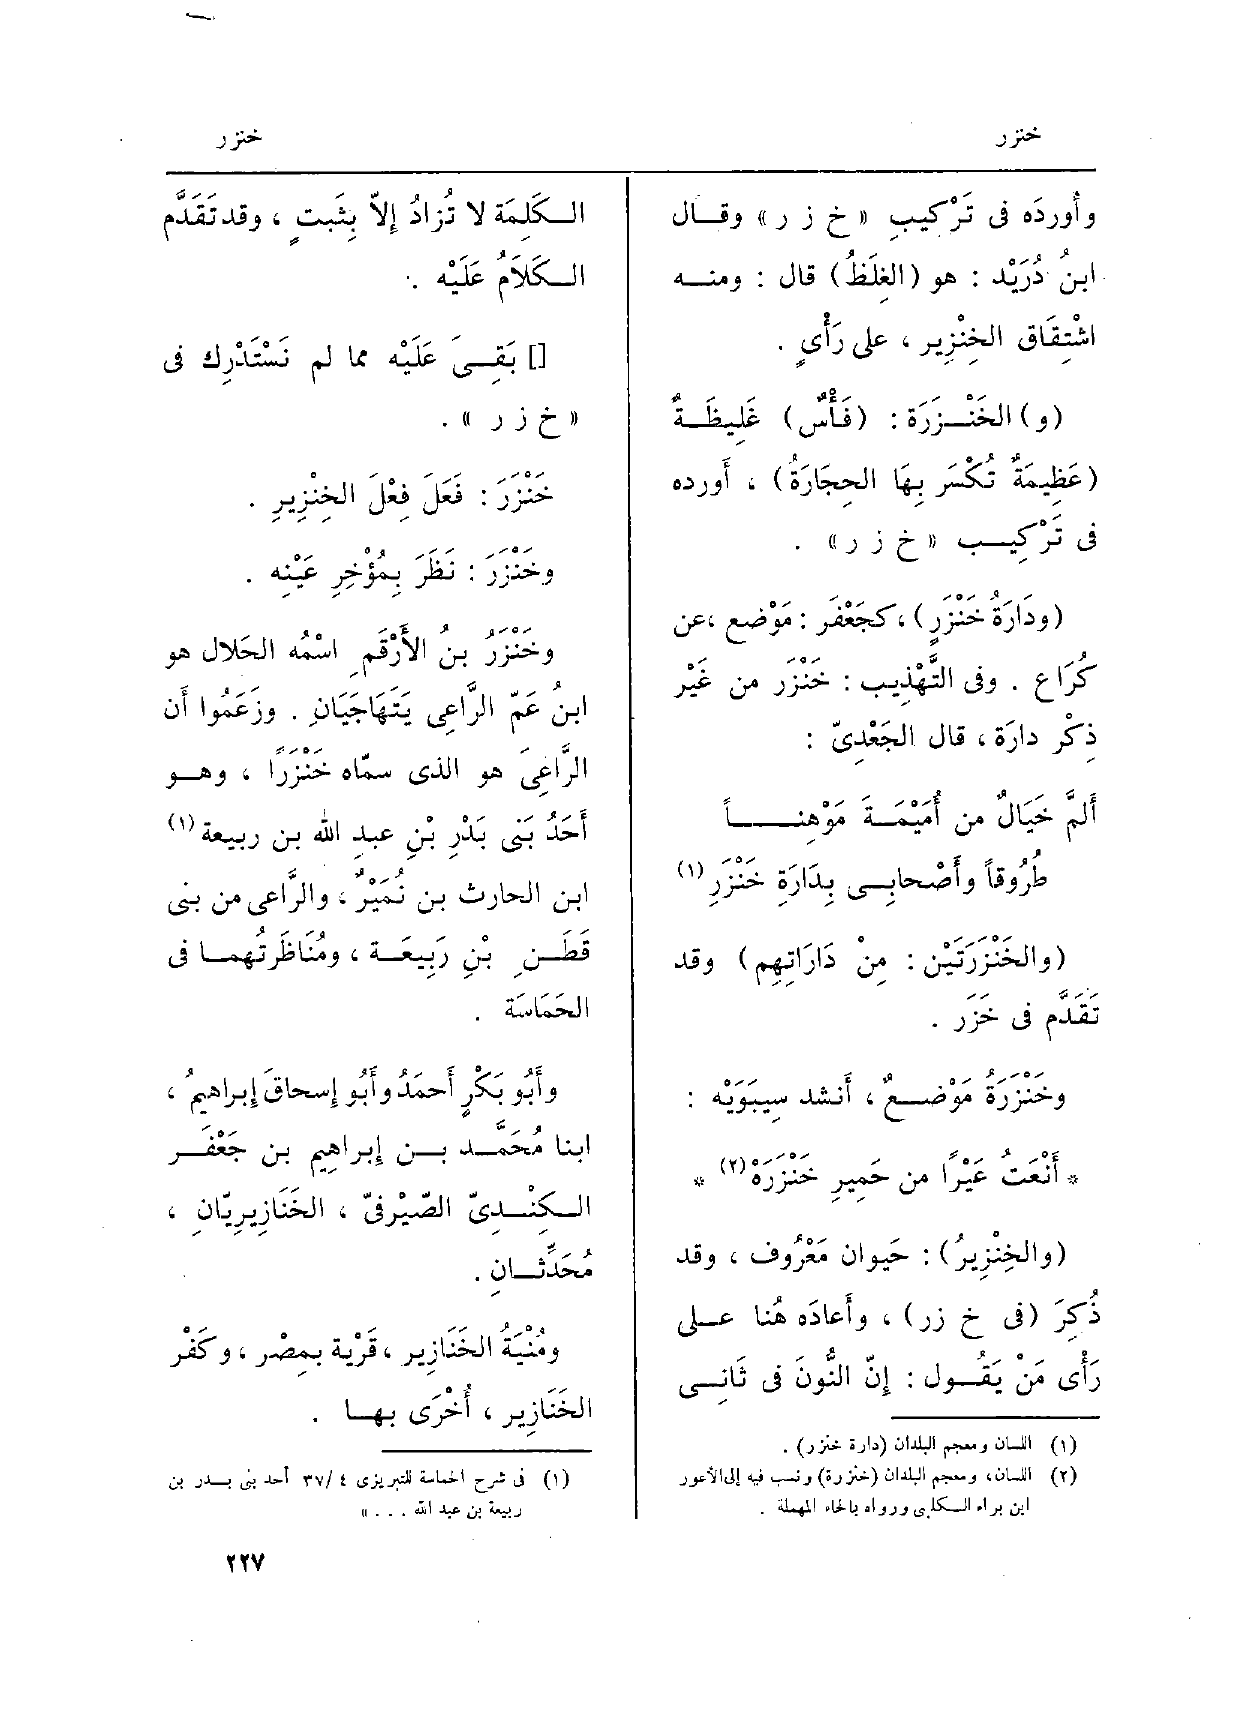 خنزر
خنزر
وأورده فى تَرْكيبِ « خ ز ر » وقــال
ابنُ دُرَيْد : هو (الغِلَظُ) قال : ومنــه
اشْتِقَاق الخِنْزِير ، على رَأْيٍ .
(و) الخَنْــزَرَة : (فَأْسٌ) غَلِيظَــةٌ
(عَظِيمَةٌ تُكْسَر بِهَا الحِجَارَةُ) ، أورده
فى تَرْكِيــب « خ ز ر » .
(ودَارَةُ خَنْزَرٍ) ، كجَعْفَر : مَوْضِع ، عن
كُرَاع . وفى التَّهْذِيب : خَنْزَر من غَيْر
ذِكْر دارَة ، قال الجَعْدِىّ :
أَلَمَّ خَيَالٌ من أُمَيْمَــةَ مَوْهِنــــاً
طُرُوقاً وأَصْحابِــى بِدَارَةِ خَنْزَرِ (١)
(والخَنْزَرَتَيْن : مِنْ دَارَاتِهِم) وقد
تَقَدَّم فى خَزَر .
وخَنْزَرَةُ مَوْضِــعٌ ، أَنشد سِيبَوَيْه :
* أَنْعَتُ عَيْرًا من حَمِيرِ خَنْزَرَهْ (٢) *
(والخِنْزِيرُ) : حَيوان مَعْرُوف ، وقد
ذُكِرَ (فى خ زر) ، وأَعادَه هُنا عــلى
رَأْى مَنْ يَقُــول : إِنّ النُّونَ فى ثَانِــى
(١) اللسان ومعجم البلدان (دارة خنزر) .
(٢) اللسان، ومعجم البلدان (خنزرة) ونسب فيه إلى الأعور
ابن براء الــكلبى ورواه بالحاء المهملة .
الــكَلِمَة لا تُزادُ إِلاّ بِثَبتٍ ، وقد تَقَدَّم
الــكَلاَمُ عَلَيْه .
[] بَقِــىَ عَلَيْه مما لم نَسْتَدْرِك فى
« خ ز ر » .
خَنْزَرَ : فَعَلَ فِعْلَ الخِنْزِيرِ .
وخَنْزَرَ : نَظَرَ بِمُؤْخِرِ عَيْنِه .
وخَنْزَرُ بن الأَرْقَمِ اسْمُه الحَلال هو
ابنُ عَمّ الرَّاعِى يَتَهَاجَيَانِ . وزَعَمُوا أن
الرَّاعِىَ هو الذى سمّاه خَنْزَرًا ، وهــو
أَحَدُ بَنِى بَدْرِ بْنِ عبد الله بن ربيعة (١)
ابن الحارث بن نُمَيْرٌ ، والرَّاعِى من بنى
قَطَــنِ بْنِ رَبِيعَــة ، ومُنَاظَرتُهمــا فى
الحَمَاسَة .
وأَبُو بَكْرٍ أَحمَدُ وأَبُو إِسحاقَ إِبراهيمُ ،
ابنا مُحَمَّــد بــن إِبراهِيم بن جَعْفَــر
الــكِنْــدِىّ الصَّيْرفِىّ ، الخَنَازِيرِيّانِ ،
مُحَدِّثَــانِ .
ومُنْيَةُ الخَنَازِير ، قَرْيَة بمصْر ، وكَفْر
الخَنَازِير ، أُخْرَى بهــا .
(١) فى شرح الحماسة للتبريزى ٤ /٣٧ أحد بنى بــدر بن
ربيعة بن عبد الله . . . »
٢٢٧